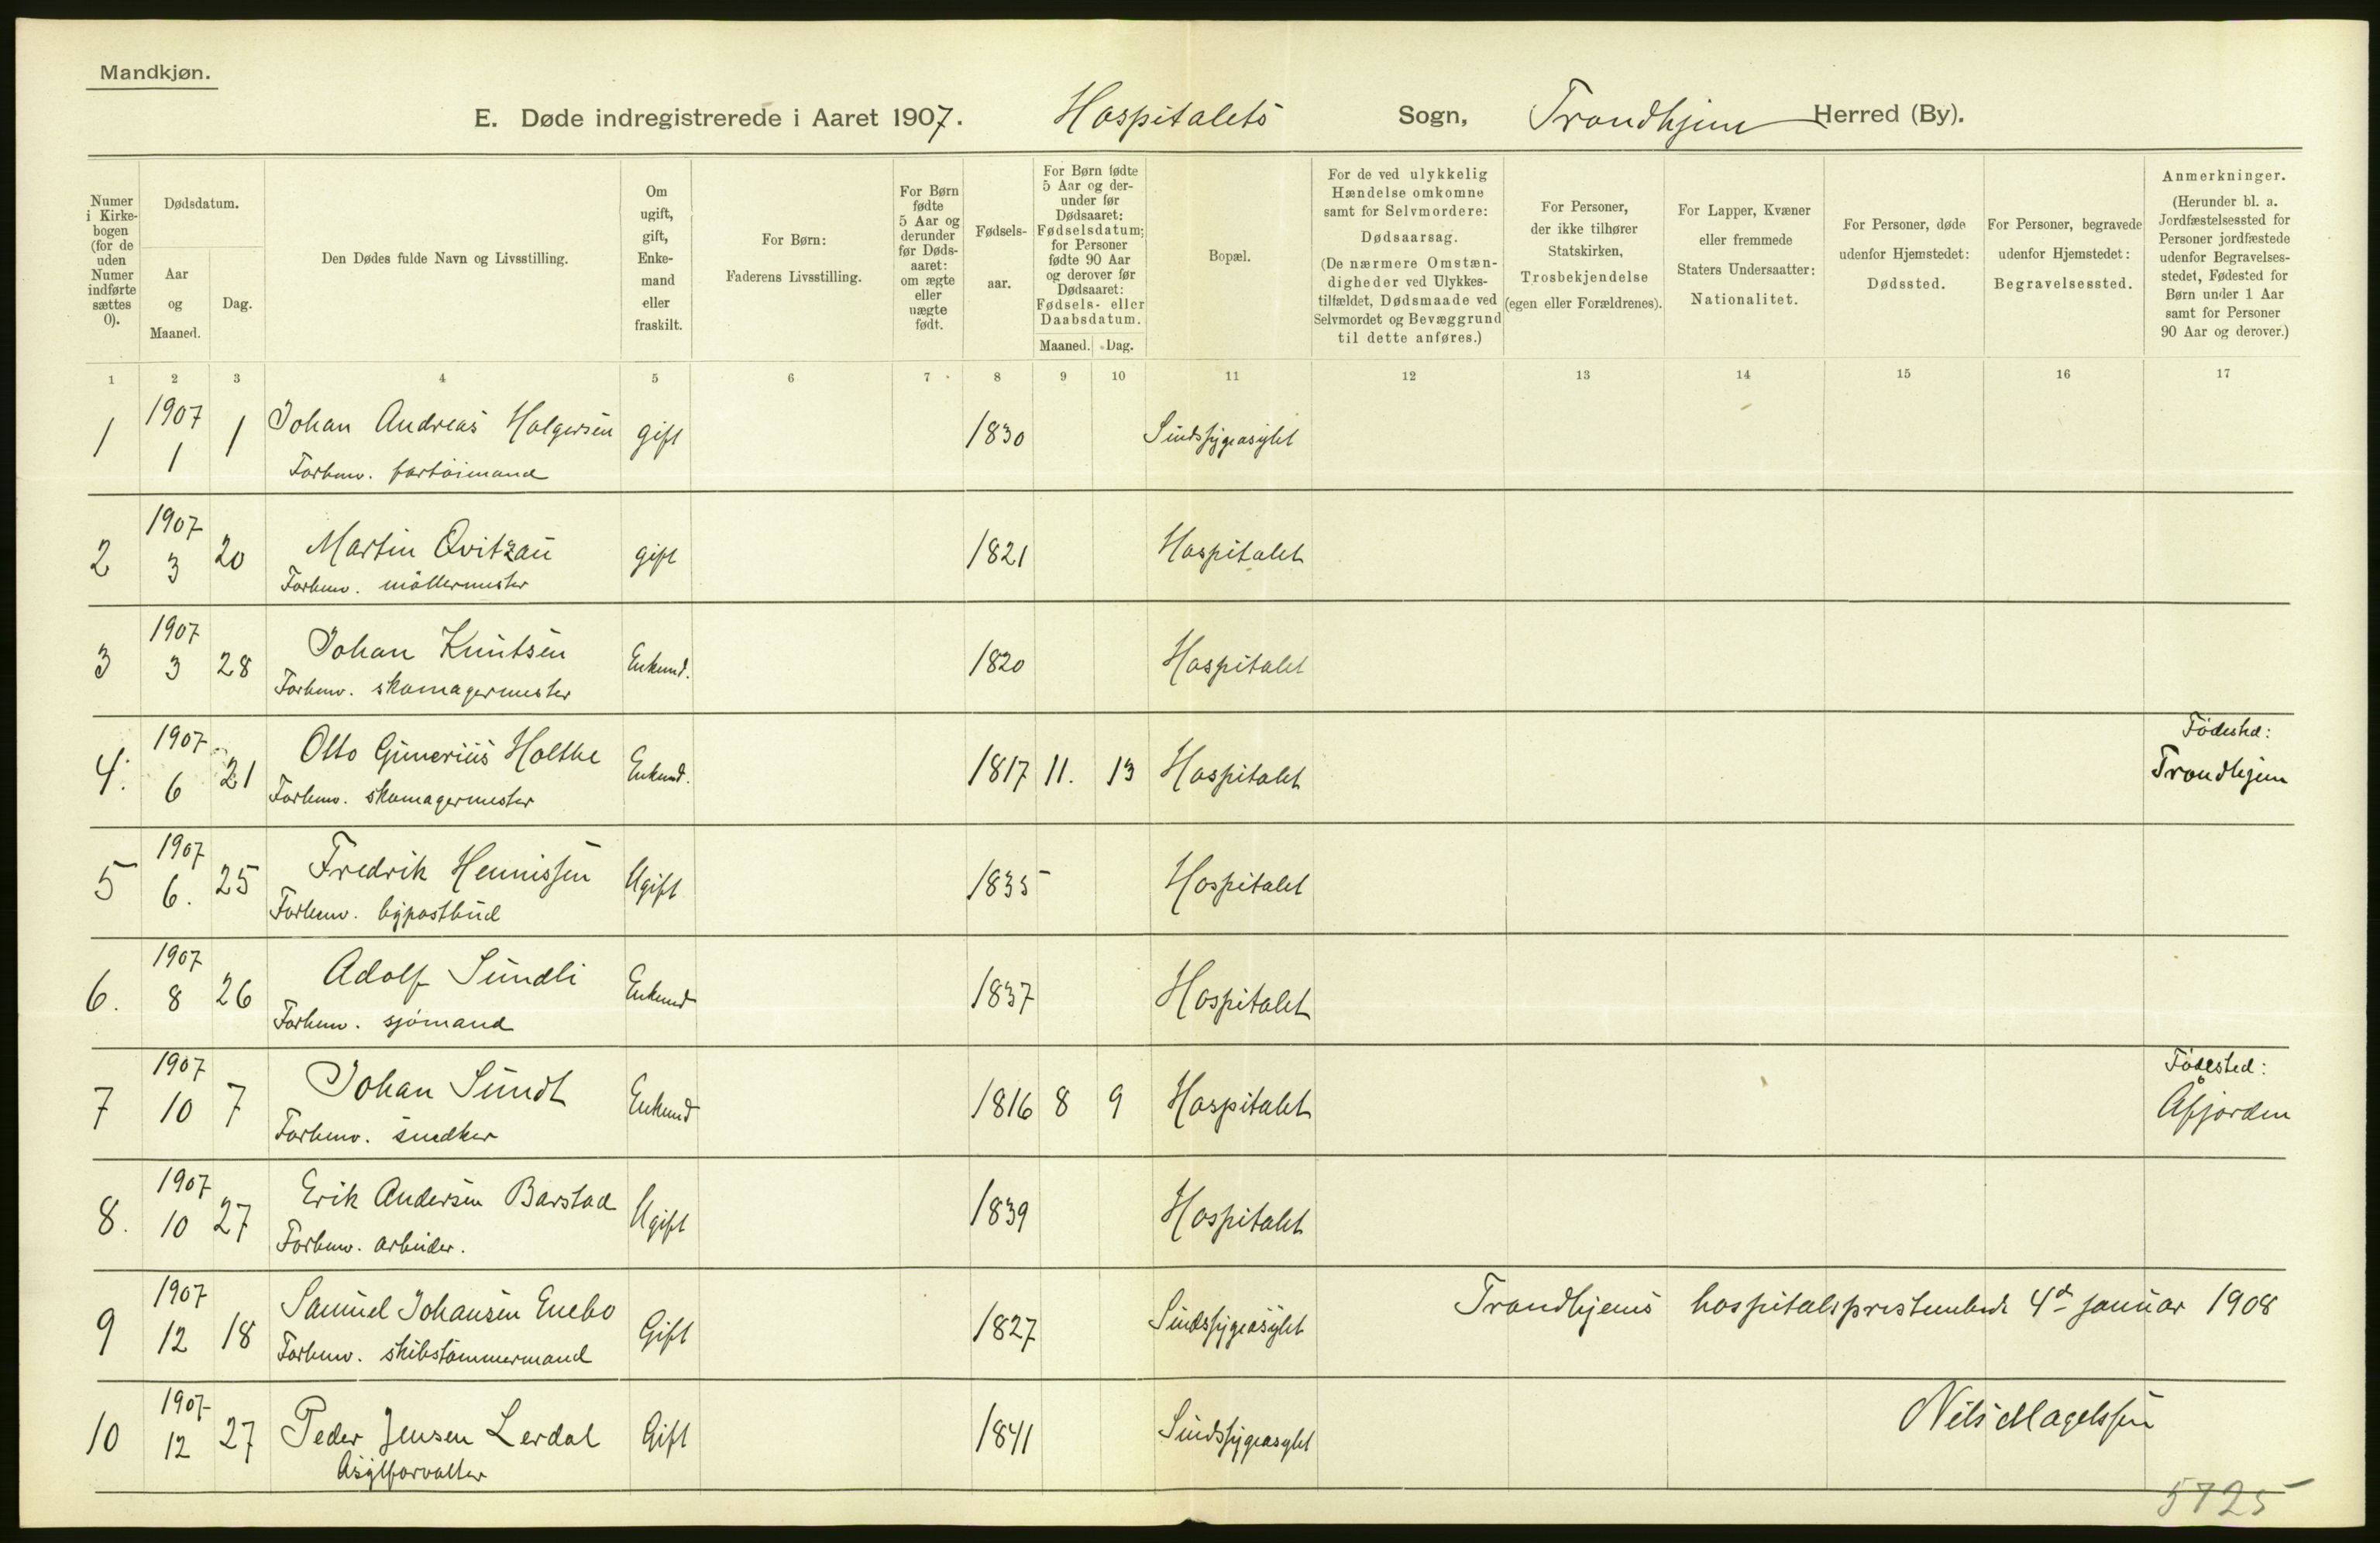 Mandkjøn.
E. Døde indregistrerede i Aaret 1907. Hospitalets Sogn, Trondhjem Herred (By).
Numer i Kirkebogen (for de uden Numer indførte sættes 0).
Dødsdatum.
Aar og Maaned.
Dag.
Den Dødes fulde Navn og Livsstilling.
Om ugift, gift, Enkemand eller fraskilt.
For Børn: Faderens Livsstilling.
For Børn fødte 5 Aar og derunder før Dødsaaret: om ægte eller uægte født.
Fødselsaar.
For Børn fødte 5 Aar og derunder før Dødsaaret: Fødselsdatum; for Personer fødte 90 Aar og derover før Dødsaaret: Fødsels- eller Daabsdatum.
Maaned. Dag.
Bopæl.
For de ved ulykkelig Hændelse omkomne samt for Selvmordere: Dødsaarsag. (De nærmere Omstændigheder ved Ulykkestilfældet, Dødsmaade ved Selvmordet og Bevæggrund til dette anføres.)
For Personer, der ikke tilhører Statskirken, Trosbekjendelse (egen eller Forældrenes).
For Lapper, Kvæner eller fremmede Staters Undersaatter: Nationalitet.
For Personer, døde udenfor Hjemstedet: Dødssted.
For Personer, begravede udenfor Hjemstedet: Begravelsessted.
Anmerkninger. (Herunder bl. a. Jordfæstelsessted for Personer jordfæstede udenfor Begravelsesstedet, Fødested for Børn under 1 Aar samt for Personer 90 Aar og derover.)
1 2 3 4 5 6 7 8 9 10 11 12 13 14 15 16 17
1907
1 1 1 Johan Andreas Holgersen gift 1830 Sindssygeasylet
Forhenv. fartöimand
1907
2 3 20 Martin Qvitzau gift 1821 Hospitalet
Forhenv. möllermester
1907
3 3 28 Johan Knutsen Enkemd. 1820 Hospitalet
Forhenv. skomagermester
1907 Födested:
4. 6 21 Otto Gunerius Holthe Enkemd. 1817 11. 13 Hospitalet Trondhjem
Forhenv. skomagermester
1907
5 6. 25 Fredrik Hennissen Ugift 1835 Hospitalet
Forhenv. bypostbud
1907
6. 8 26 Adolf Sundli Enkemd 1837 Hospitalet
Forhenv. sjömand
1907 Födested:
7 10 7 Johan Sundt Enkemd 1816 8 9 Hospitalet Åfjorden
Forhenv. snedker
1907
8. 10 27 Erik Andersen Barstad Ugift 1839 Hospitalet
Forhenv. arbeider.
1907
9 12 18 Samuel Johansen Enebo Gift 1827 Sindssygeasylet Trondhjems hospitalsprestembede 4de januar 1908
Forhenv. skibstömmermand
1907
10 12 27 Peder Jensen Lerdal Gift 1841 Sindssygeasylet Nils Magelssen
Asylforvalter
5725